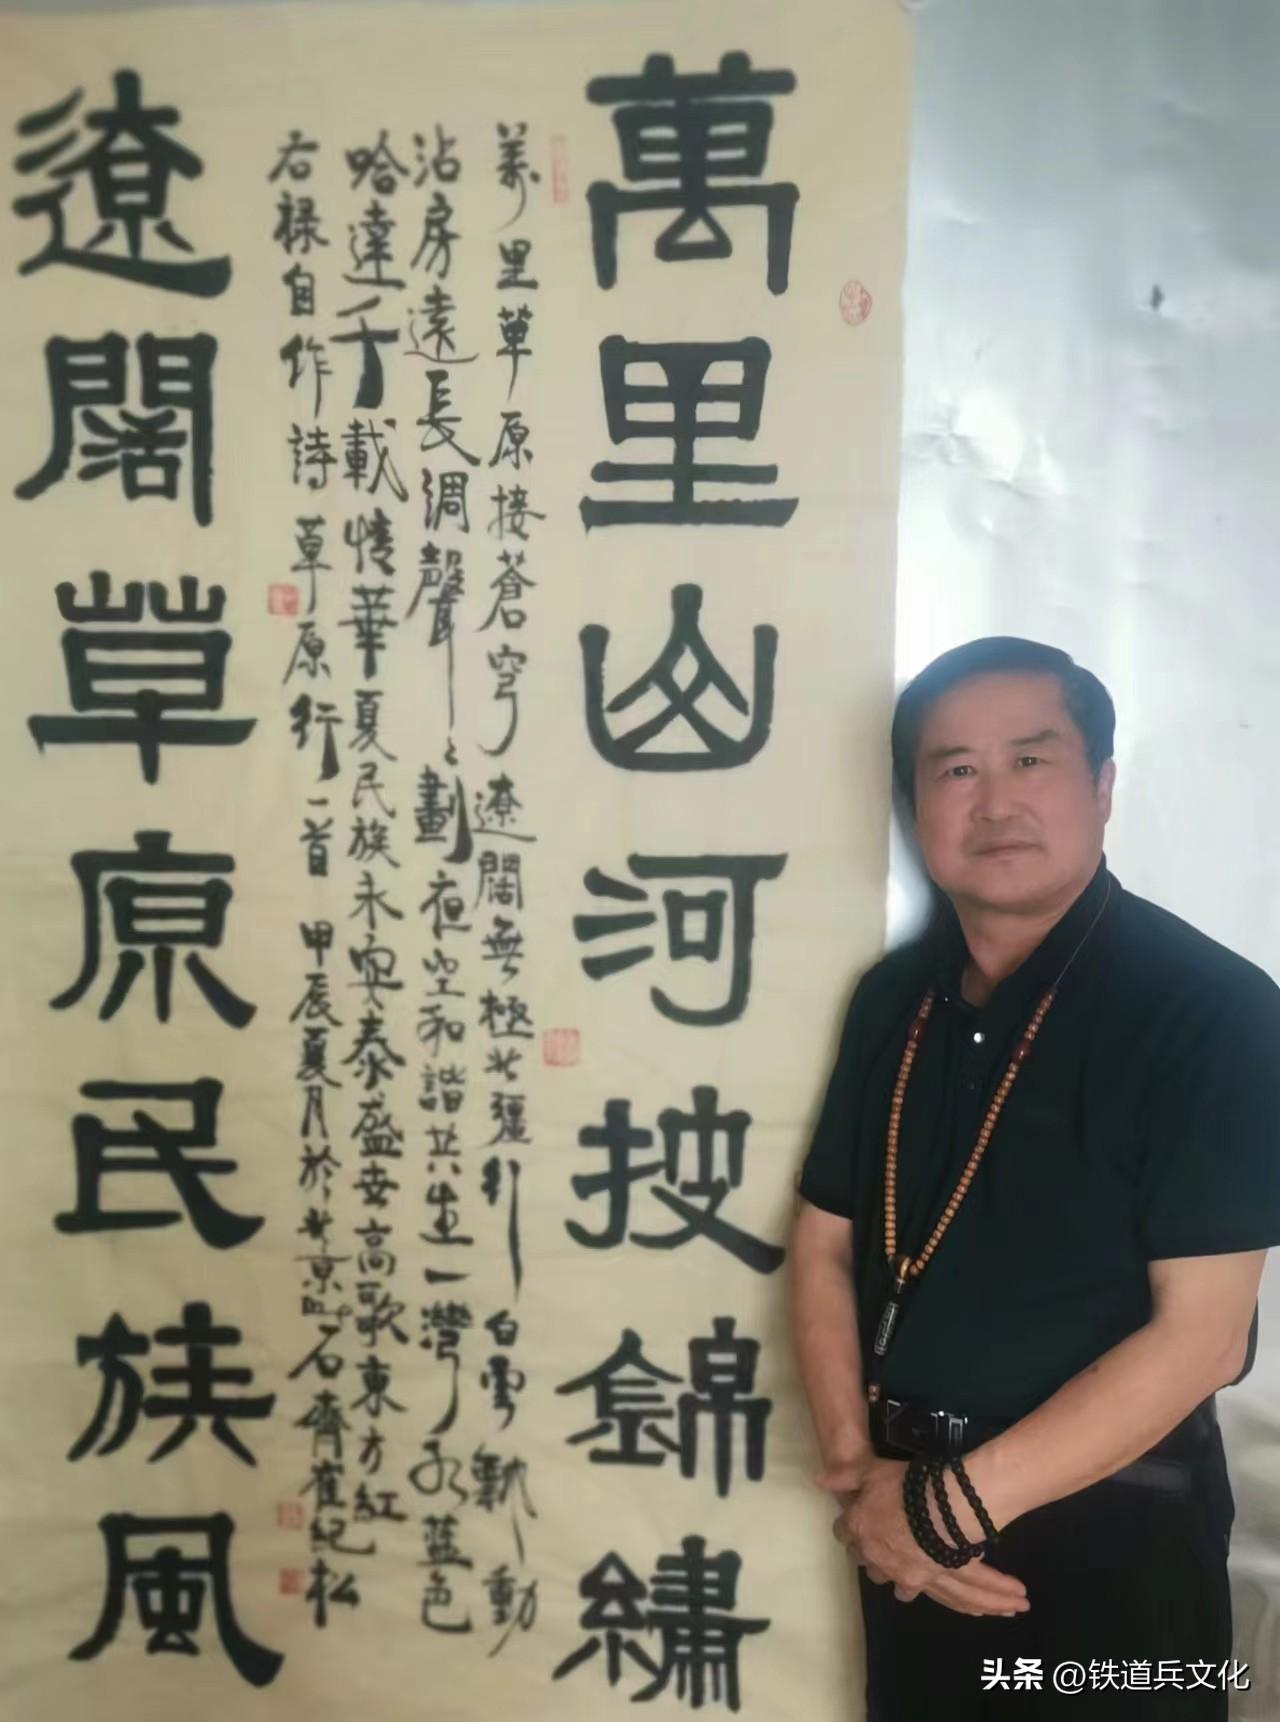 萬里山河披錦繡
萬里草原接蒼穹遼闊無極北疆行白雲飄動
沾房遠長調聲聲劃夜空和諧共生一灣水藍色
哈達千載情華夏民族永安泰盛世高歌東方紅
右祿自作詩草原行一首甲辰夏月於北京石齋崔紀松
遼闊草原民族風
头条 @铁道兵文化